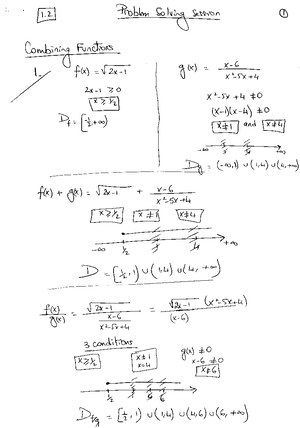 1.2 Problem Solving Session 1
Combining Functions
1. f(x) = √2x-1
2x-1 ≥ 0
x ≥ 1/2
D_f = [1/2, +∞)
g(x) = x-6 / x²-5x+4
x²-5x+4 ≠ 0
(x-1)(x-4) ≠ 0
x≠1 and x≠4
-∞ 1 4 +∞
D_g = (-∞,1) ∪ (1,4) ∪ (4,+∞)
f(x) + g(x) = √2x-1 + x-6 / x²-5x+4
x ≥ 1/2 x ≠ 1 x≠4
-∞ 1/2 1 4 +∞
D = [1/2, 1) ∪ (1,4) ∪ (4, +∞)
f(x) / g(x) = √2x-1 / (x-6 / x²-5x+4) = √2x-1 (x²-5x+4) / (x-6)
3 conditions
x ≥ 1/2
x≠1
x≠4
g(x) ≠ 0
x-6 ≠ 0
x≠6
1/2 1 4 6
D_f/g = [1/2, 1) ∪ (1,4) ∪ (4,6) ∪ (6, +∞)